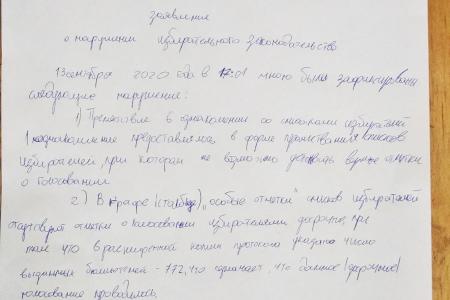 заявление
о нарушении избирательного законодательства
13 сентября 2020 года в 17:01 мною были зафиксированы
следующие нарушения:
1) Препятствие в ознакомлении со списками избирателей
ознакомление предоставлялось в форме пролистывания списков
избирателей, при котором не возможно увидеть отметки
о голосовании
2.) В графе (столбце) "особые отметки" списков избирателей
отсутствуют отметки о голосовании избирателями досрочно, при
том что в расширенной копии протокола указано число
выданных бюллетеней - 772, что означает, что данное (досрочно)
голосование проводилось.